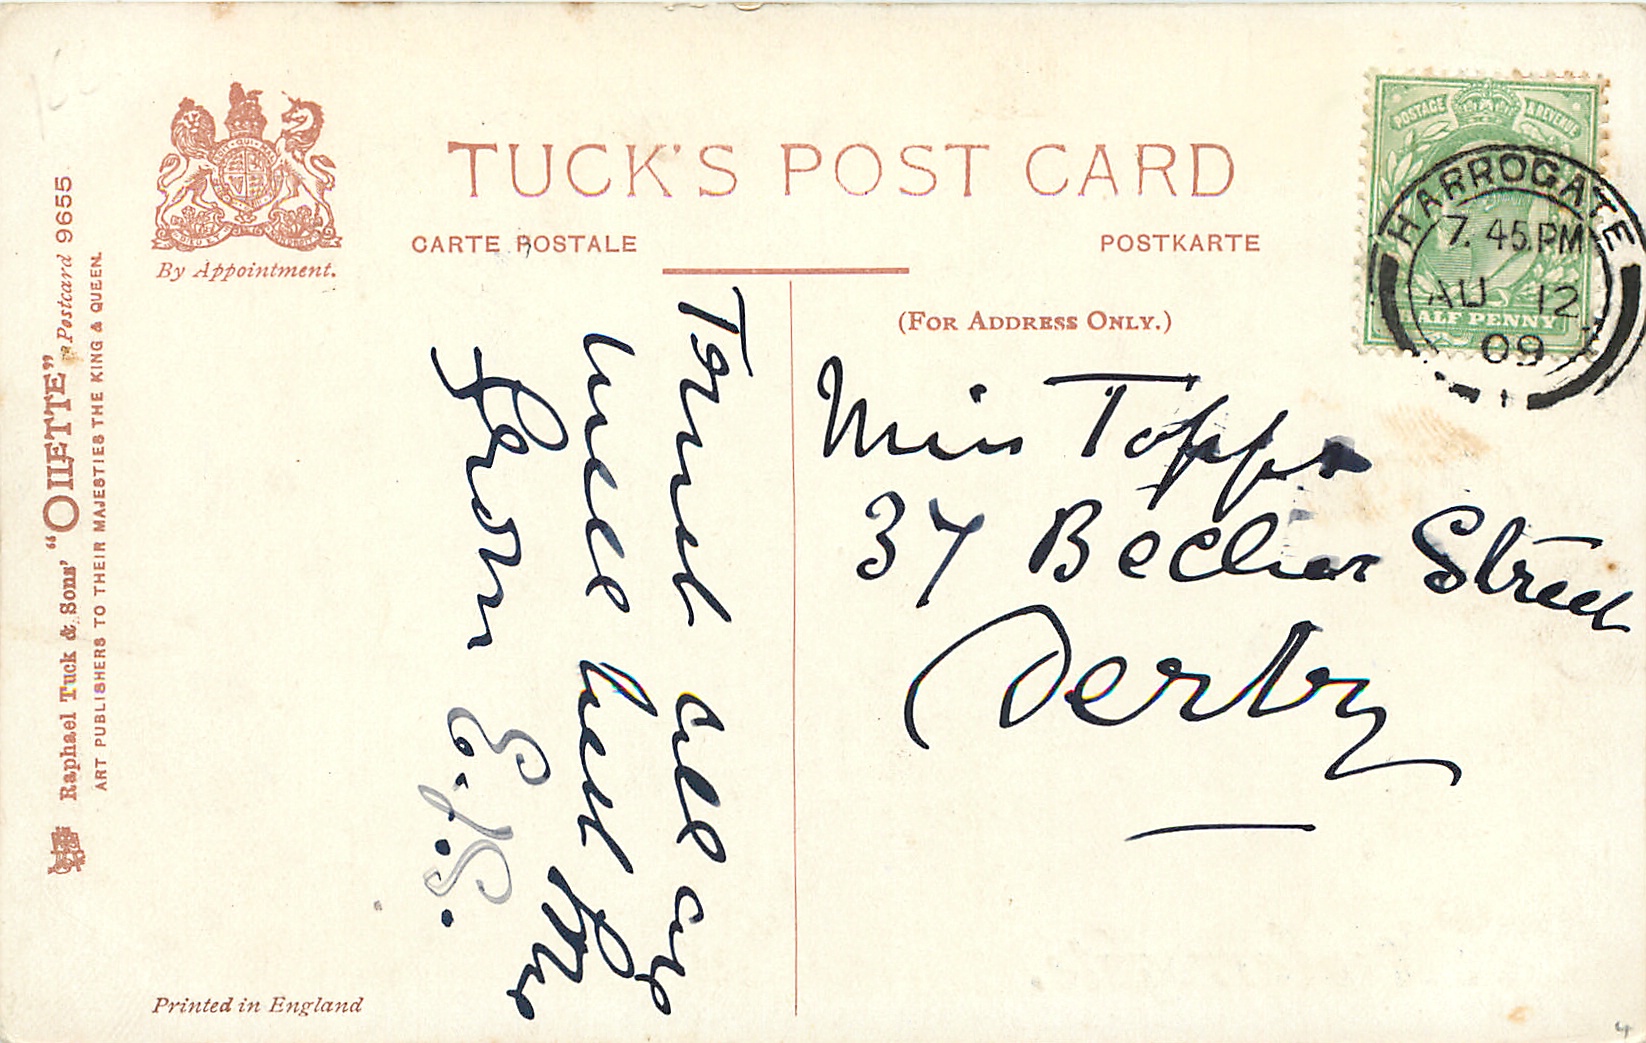 TUCK'S POST CARD
CARTE POSTALE
POSTKARTE
By Appointment.
(FOR ADDRESS ONLY.)
POSTAGE & REVENUE
HALF PENNY
HARROGATE
7. 45. PM
AU 12
09
Miss Topps
37 Becher Street
Derby
Trust all are
well best
from E.J.S.
Raphael Tuck & Sons' "OILETTE" Postcard 9655
ART PUBLISHERS TO THEIR MAJESTIES THE KING & QUEEN.
Printed in England